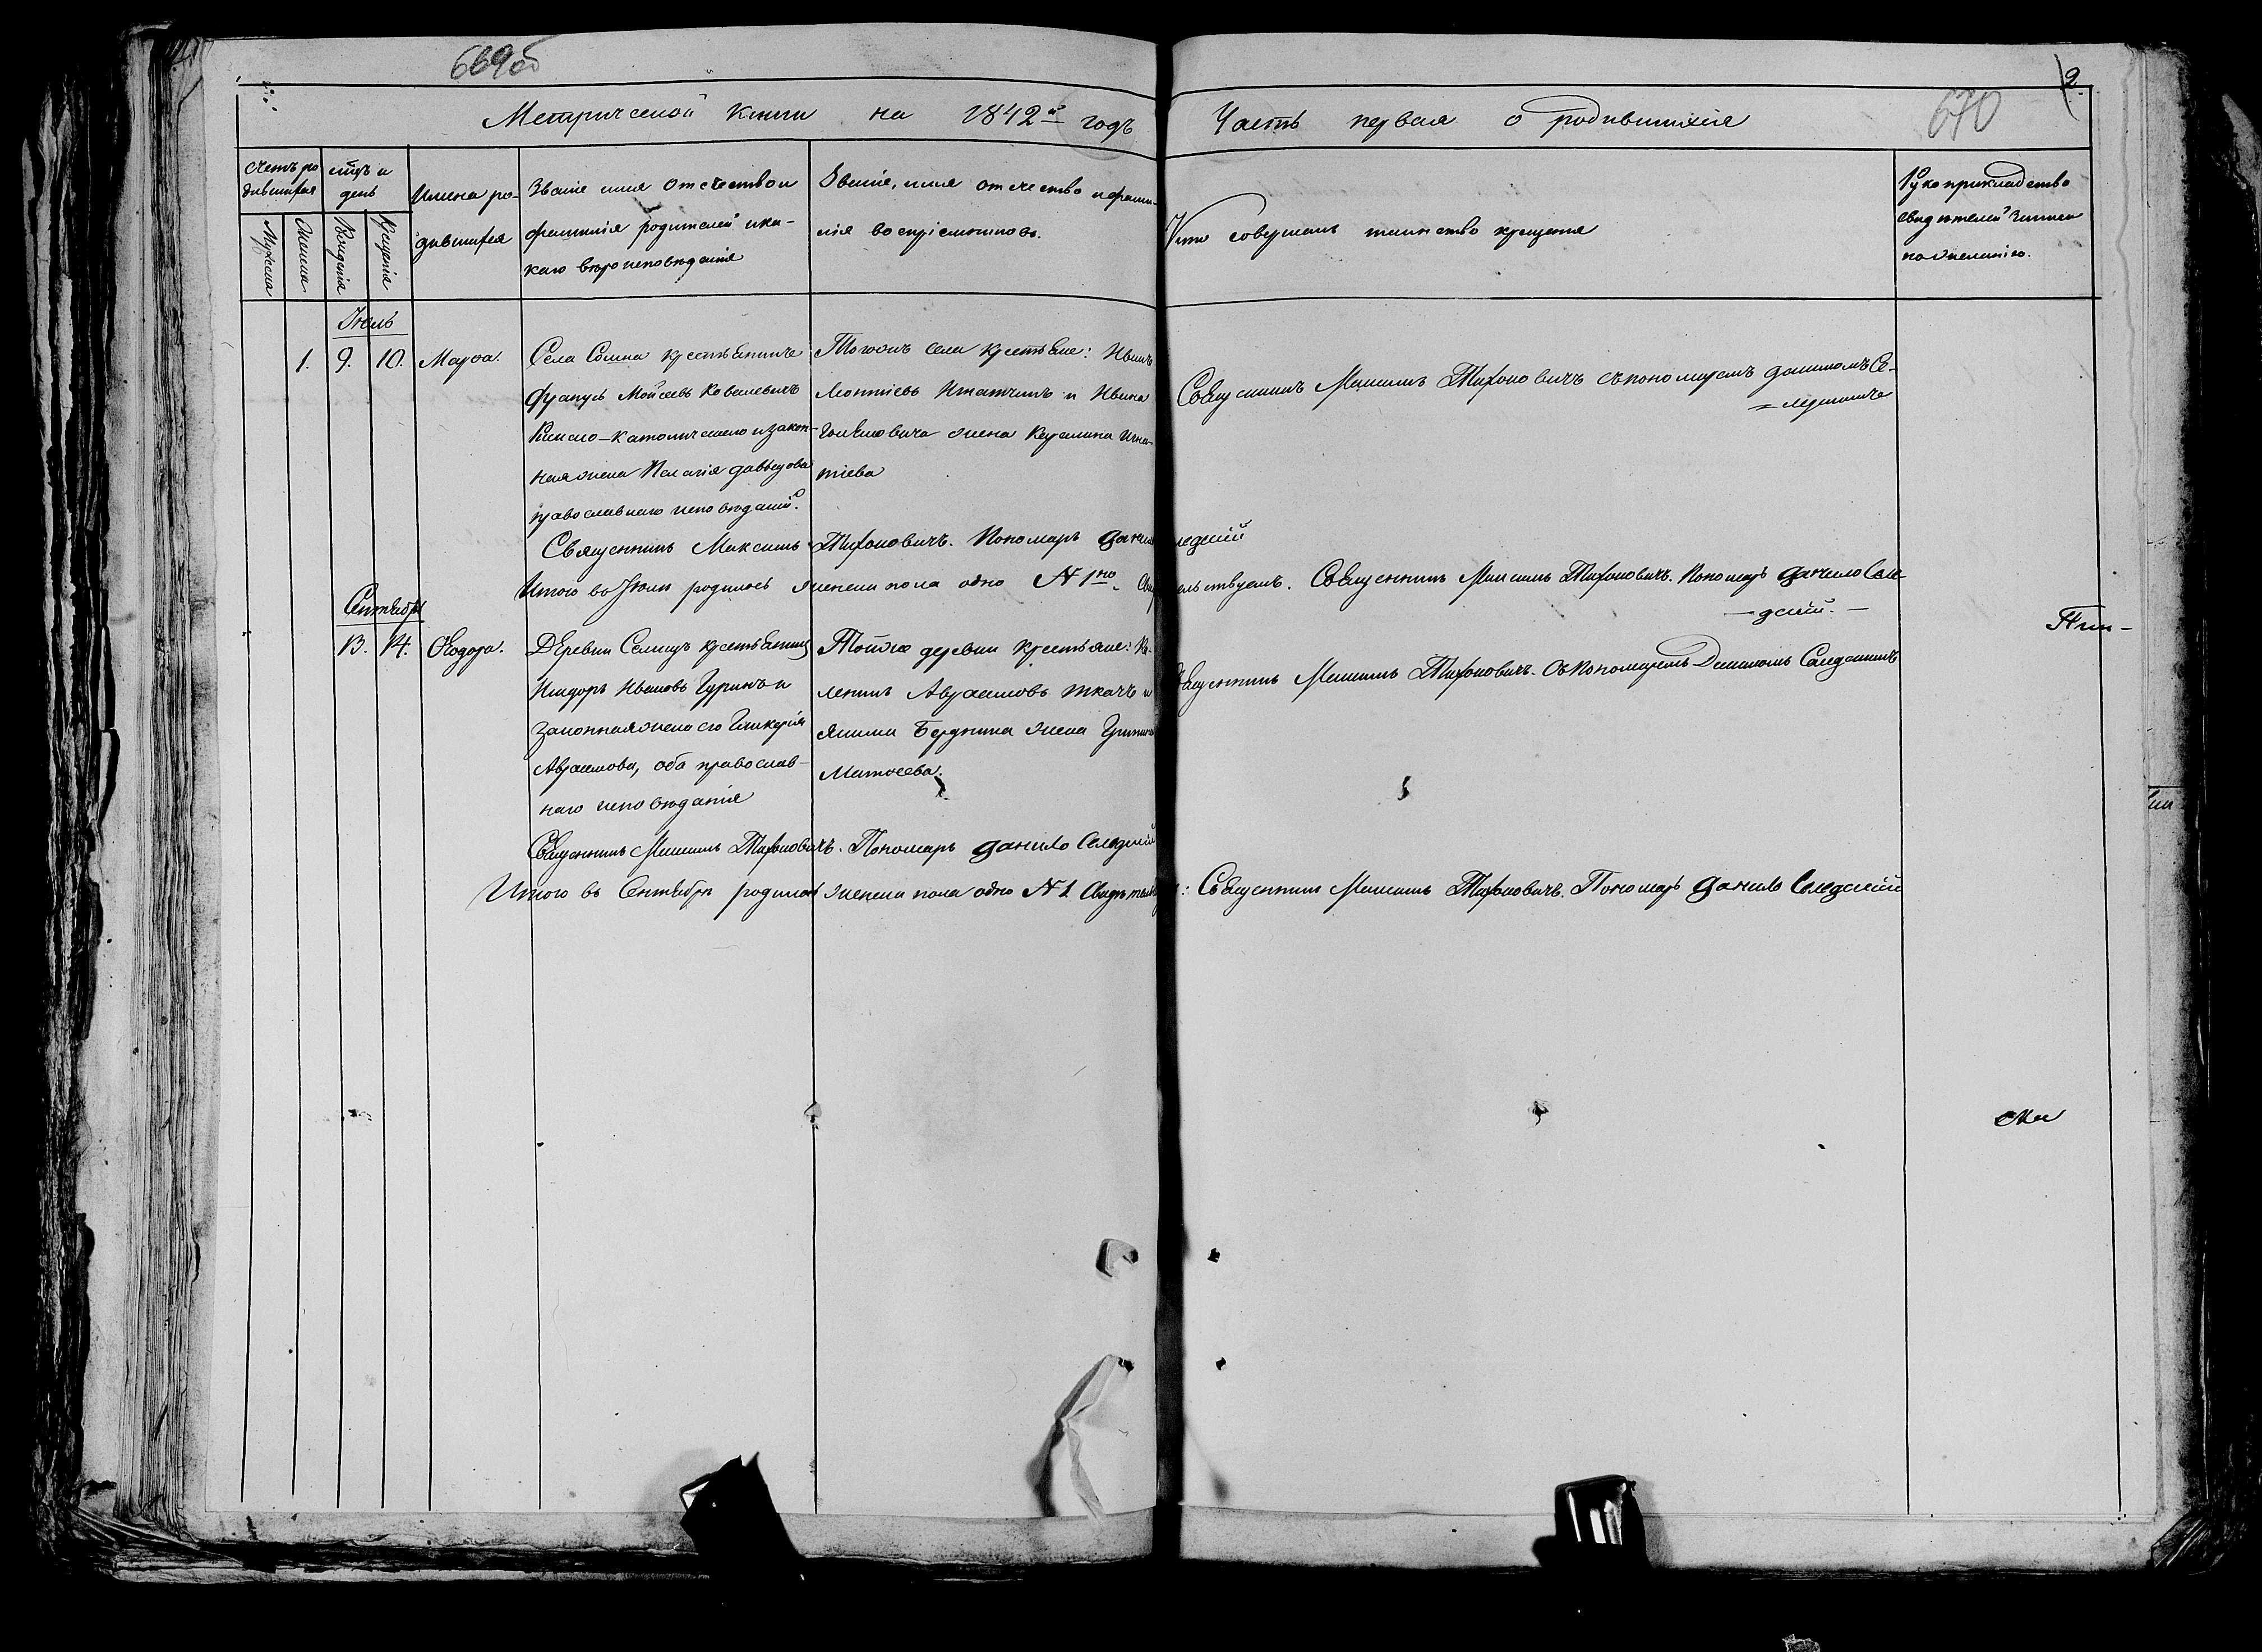 669об
2.
670
Метрической Книги на 1842й годъ Часть первая о родившихся
Счетъ родившихся
мцъ и день
Имена родившихся
Званіе имя Отечество и фамилія родителей и какаго вѣроисповѣданія
Званіе, имя отечество и фамилія воспріемниковъ.
Кто совершалъ таинство крещенія
Рукоприкладство свидѣтелей записи по желанію.
Мужеска
Женска
Рожденія
Крещенія
Іюль
1. 9. 10. Марѳа.
Села Сомина крестьянинъ
Францъ Мойсеевъ Ковалевичъ
Римско-католическаго и закон-
ная жена Пелагія Давыдова
православнаго исповѣданій.
Тогожъ села крестьяне: Иванъ
Леонтіевъ Игнатчикъ и Ивана
жена Керилина Игна-
тіева
Священникъ Максимъ Тихоновичъ съ пономаремъ Даниломъ Се-
Священникъ Максимъ Тихоновичъ. Пономаръ Данило
Итого въ Іюлѣ родилось женска пола одно N 1но. Священникъ Максимъ Тихоновичъ. Пономаръ Данило Селе-
дскій.
Сентябрь
13. 14. Ѳеодора.
Деревни Селищъ крестьянинъ
Исидоръ Ивановъ Гуринъ и
законная жена его Гликерія
Авраамова, оба православ-
наго исповѣданія
Тойже деревни крестьяне: Ка-
леникъ Авраамовъ Ткачъ и
Якима Бердника жена
Матѳеева.
Священникъ Максимъ Тихоновичъ. Съ Пономаремъ Даниломъ Следскимъ
Пин-
Священникъ Максимъ Тихоновичъ. Пономаръ Данило Следскій
Итого въ Сентябрѣ родилась женска пола одно N 1. Священникъ Максимъ Тихоновичъ. Пономаръ Данило Следскій
ска